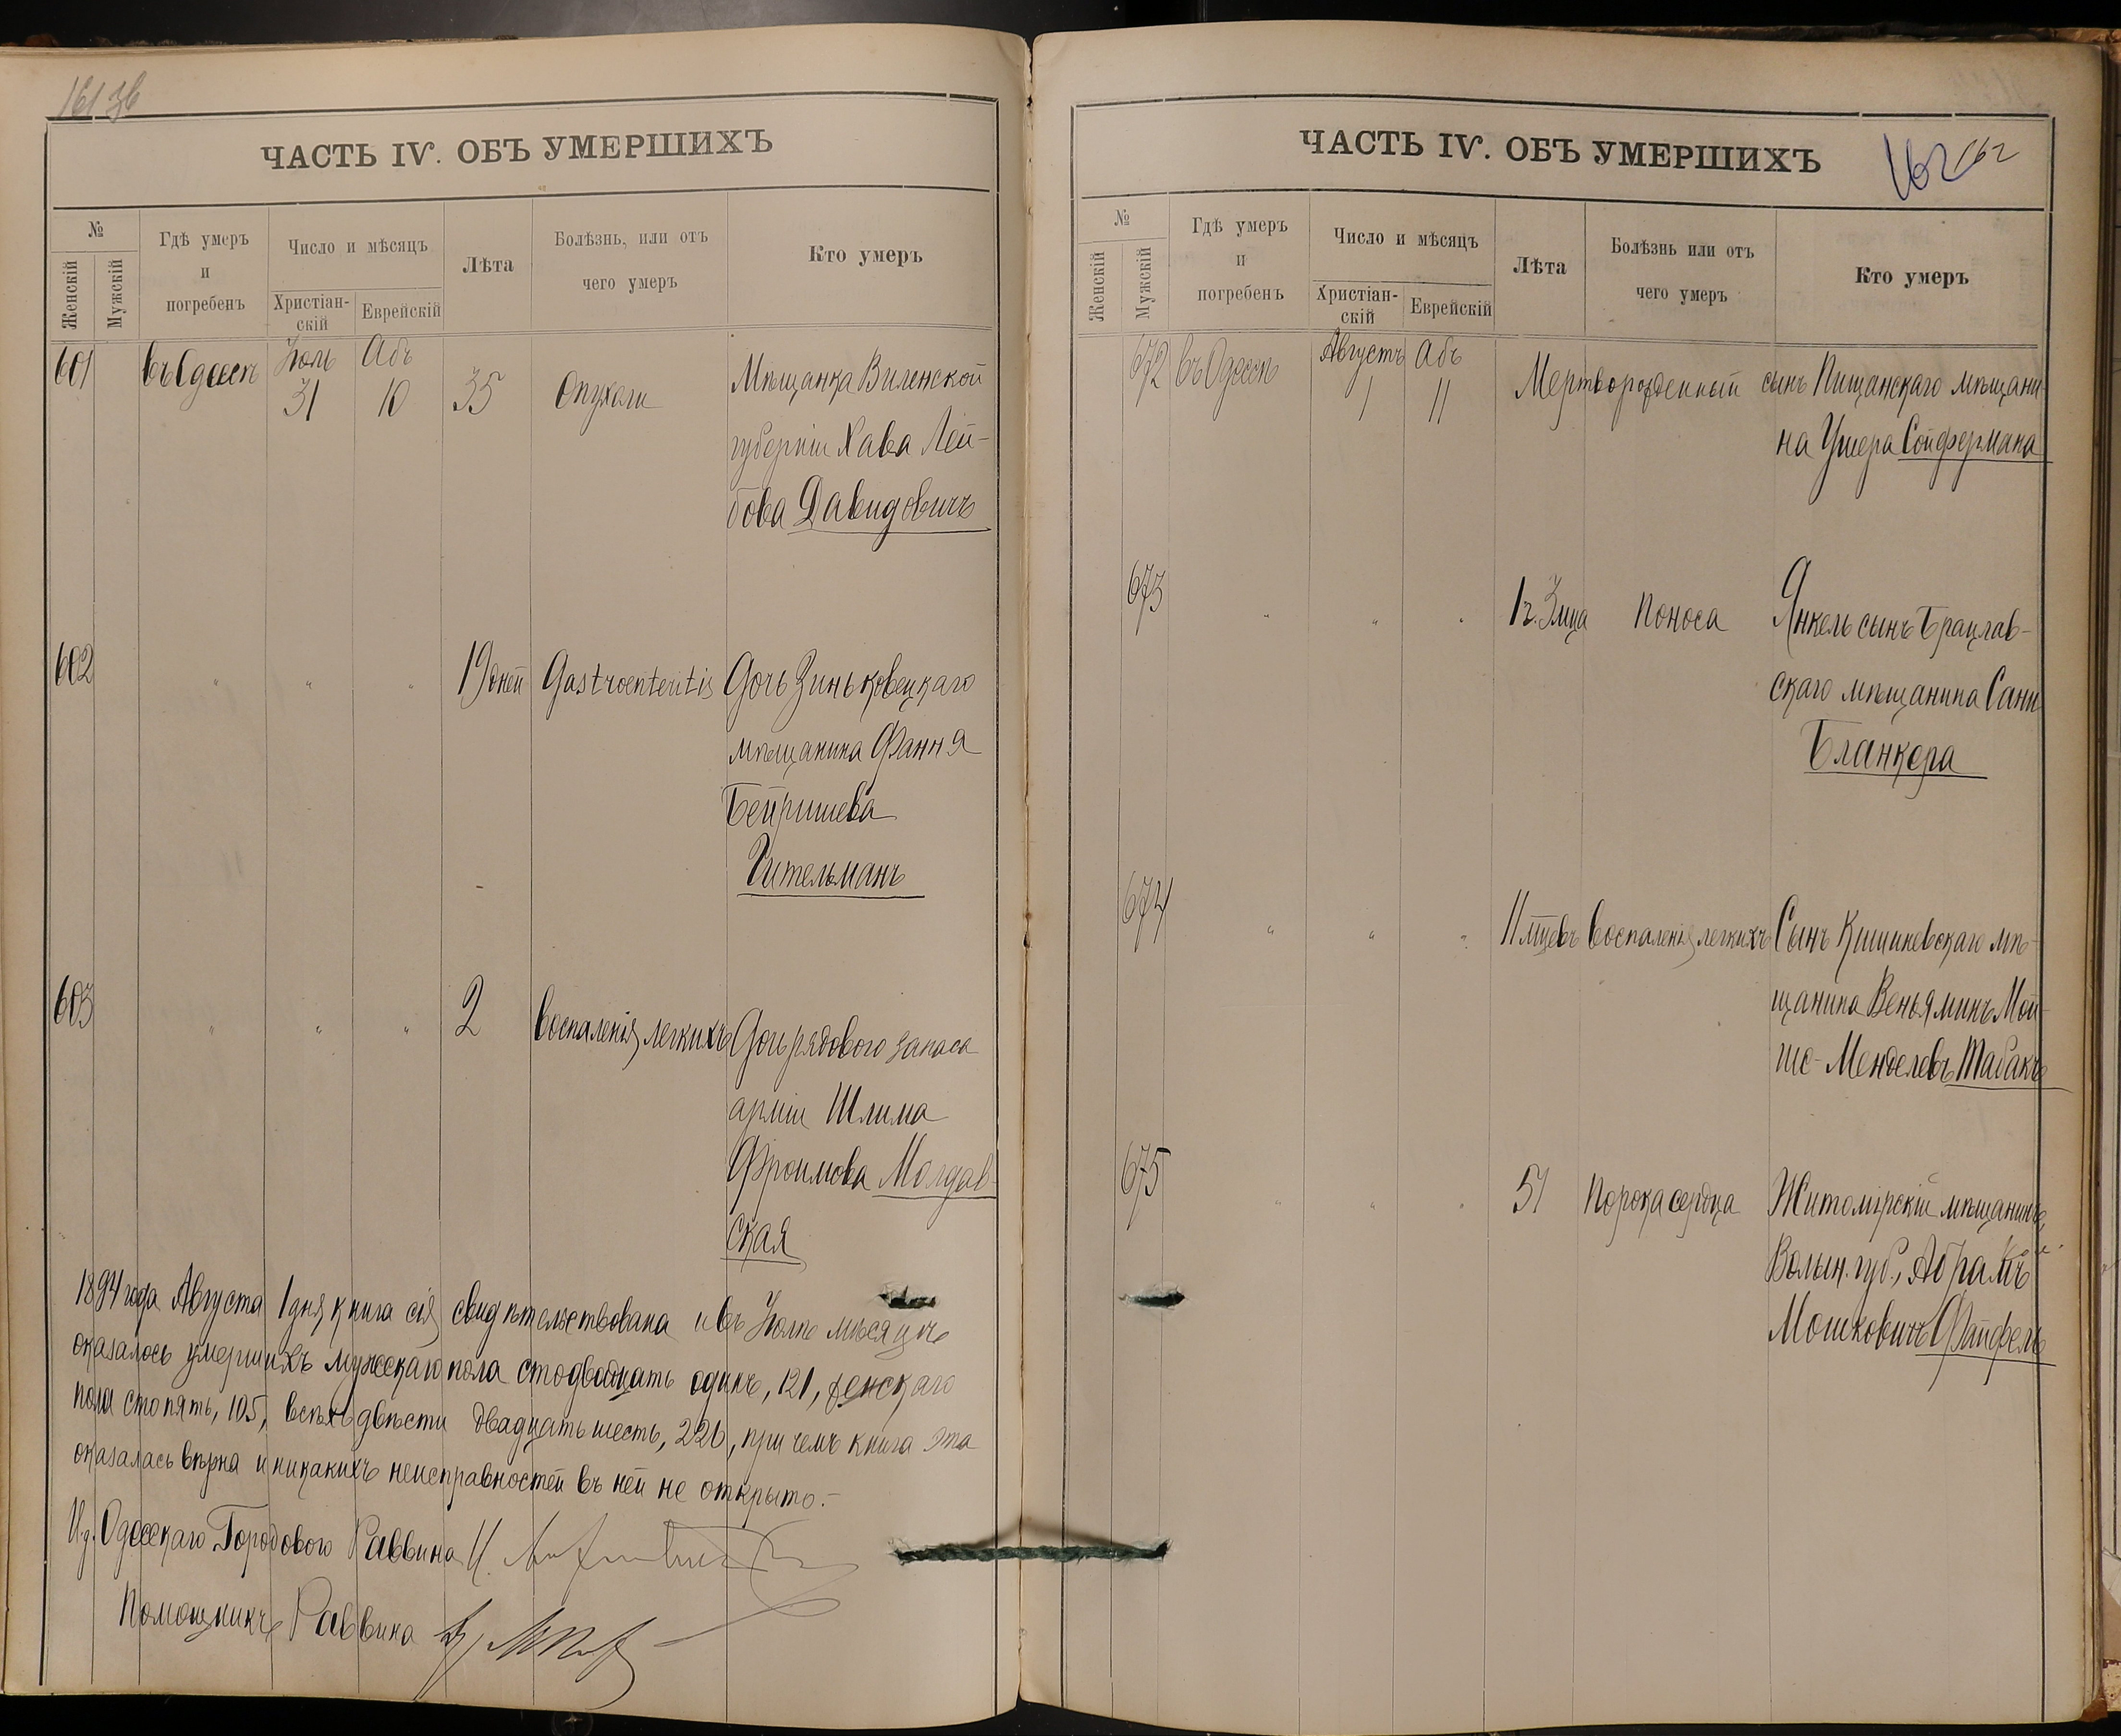 161 зв
ЧАСТЬ IV. ОБЪ УМЕРШИХЪ
№
Женскій
Мужскій
Гдѣ умеръ
и
погребенъ
Число и мѣсяцъ
Христіан-
скій
Еврейскій
Лѣта
Болѣзнь, или отъ
чего умеръ
Кто умеръ
601 въ Одессѣ Іюль 31 Абъ 10 35 Опухоли Мѣщанка Виленской
губерніи Хава Лей-
бова Давидовичъ
602 " " " 19 дней Gastroenteritis Дочь Зиньковецкаго
мѣщанина Фання
Бейришева
Гительманъ
603 " " " 2 Воспаленія легкихъ Дочь рядового запаса
арміи Шлима
Фроимова Молдав-
ская
1894 года Августа 1 дня книга сія свидѣтельствована и въ Іюлѣ мѣсяцѣ
оказалось умершихъ мужскаго пола сто двадцать одинъ, 121, женскаго
пола сто пять, 105, всѣхъ двѣсти двадцать шесть, 226, при чемъ книга эта
оказалась вѣрна и никакихъ неисправностей въ ней не открыто.-
И.д. Одесскаго Городового Раввина
Помощникъ Раввина
ЧАСТЬ IV. ОБЪ УМЕРШИХЪ
162 162
№
Женскій
Мужскій
Гдѣ умеръ
и
погребенъ
Число и мѣсяцъ
Христіан-
скій
Еврейскій
Лѣта
Болѣзнь или отъ
чего умеръ
Кто умеръ
672 въ Одессѣ Августъ 1 Абъ 11 Мертворожденный сынъ Пищанскаго мѣщани-
на Ушера Сойфермана
673 " " " 1 г. 3 мца Поноса Янкель сынъ Брацлав-
скаго мѣщанина Сани
Бланкера
674 " " " 11 мцевъ Воспаленія легкихъ Сынъ Кишиневскаго мѣ-
щанина Веньяминъ Мой-
ше-Менделевъ Табакъ
675 " " " 51 Порока сердца Житомірскій мѣщанинъ,
Волын. губ., Абрамъ
Мошковичъ Файфель